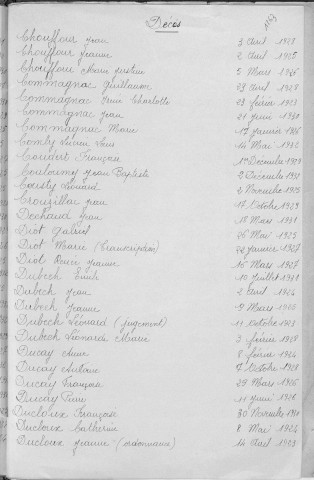 Décès
Chouffour Jean 3 Avril 1928
Chouffour Jeanne 2 Avril 1925
Chouffour Marie 5 Mars 1926
Commagnac Guillaume 29 Avril
Commagnac Charlotte 23 février 1923
Commagnac Jean 21 Juin 1930
Commagnac Marie 17 Janvier 1926
Comty Lucien Louis 14 Mai 1932
Coudert François Décembre
Couloumy Jean Baptiste 2 Décembre 1932
Cousty Léonard 2 Novembre 1925
Crouzillac Jean 17 Octobre 1929
Dechaud Jean 18 Mars 1931
Diot Gabriel 26 Mai 1925
Diot Marie (transcription) 22 Janvier 1927
Diot Jeanne 16 Mars 1927
Dubech Emile 10 Juillet 1931
Dubech Jean 2 Avril 1924
Dubech Jeanne 9 Mars 1926
Dubech Léonard (jugement) 11 Octobre 1923
Dubech Léonarde Marie 3 février 1928
Ducay Anne 8 février 1924
Ducay Antoine 7 Octobre 1928
Ducay François 29 Mars 1926
Ducay Pierre 11 Juin 1926
Ducloux Françoise 30 Novembre
Ducloux Catherine 8 Mai 1924
Ducloux Jeanne (ordonnance) 14 Avril 1923